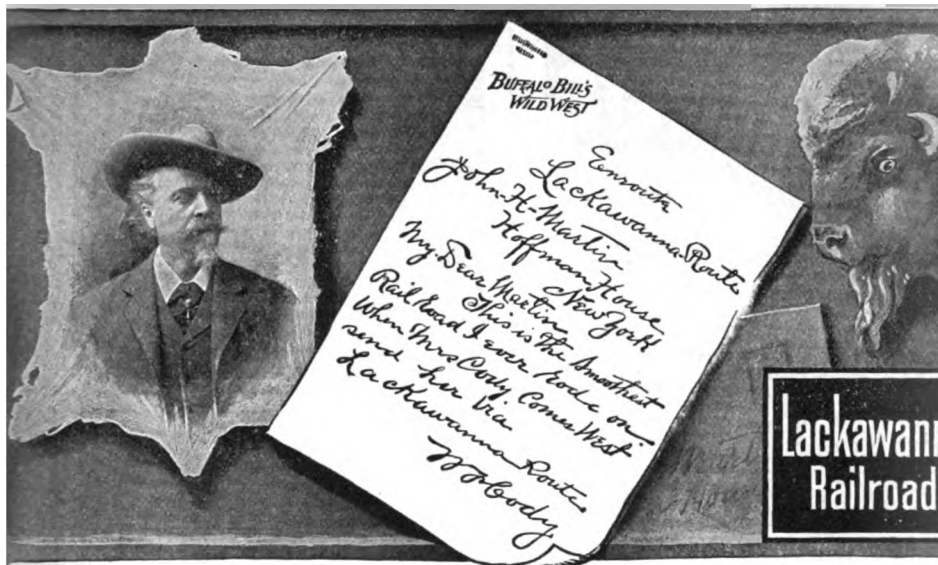 BUFFALO BILL'S
WILD WEST
Enroute
Lackawanna Route
John-H-Martin
Hoffman House
New York
My Dear Martin
This is the Smoothest
Rail Road I ever rode on
When Mrs Cody Comes West
send her via
Lackawanna Route
WFCody
Lackawann
Railroad